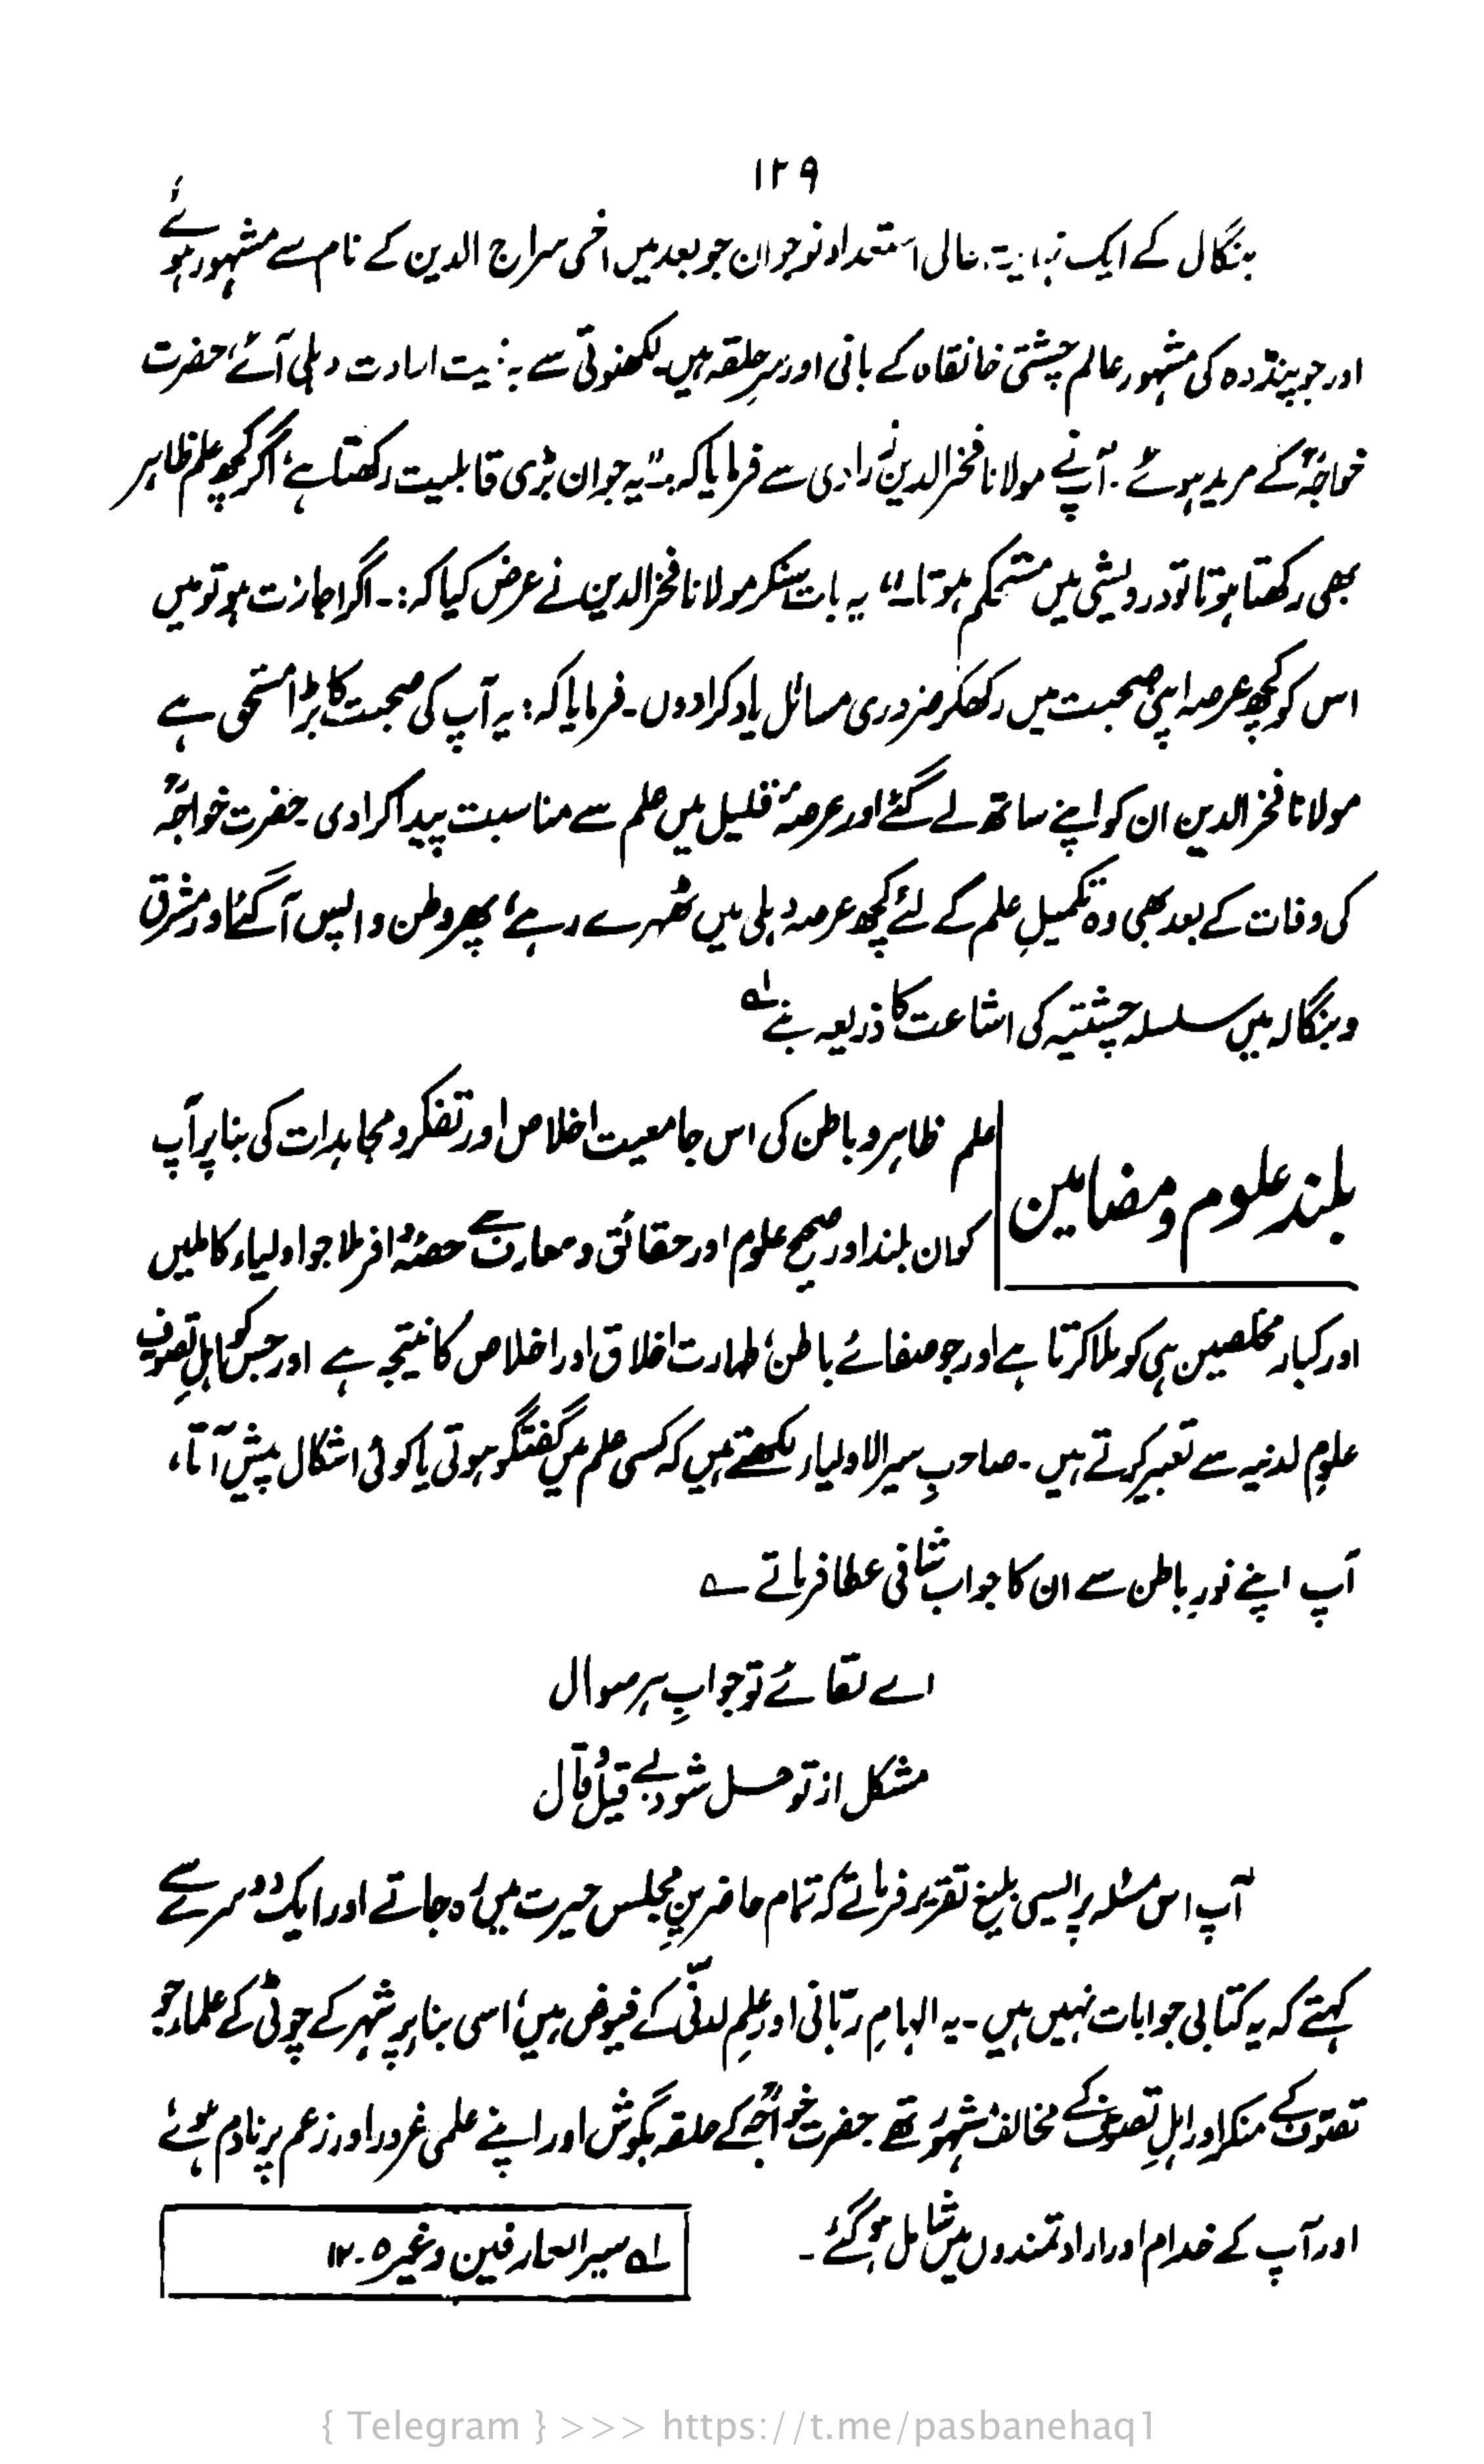 ۱۲۹
بنگال کے ایک نہایت عالی استعداد نوجوان جو بعد میں اخی سراج الدین کے نام سے مشہور ہوئے
اور جو پنڈوہ کی مشہور عالم چشتی خانقاہ کے بانی اور سرِحلقہ ہیں۔ لکھنوتی سے بہ نیت ارادت دہلی آئے، حضرت
خواجہؒ کے مرید ہوئے۔ آپ نے مولانا فخرالدینؒ زرادی سے فرمایا کہ:۔ "یہ جوان بڑی قابلیت رکھتا ہے، اگر کچھ علم ظاہر
بھی رکھتا ہوتا تو درویشی میں مستحکم ہوتا۔" یہ بات سنکر مولانا فخرالدین نے عرض کیا کہ:۔ اگر اجازت ہو تو میں
اس کو کچھ عرصہ اپنی صحبت میں رکھکر ضروری مسائل یاد کرادوں۔ فرمایا کہ: یہ آپ کی صحبت کا بڑا مستحق ہے
مولانا فخرالدین ان کو اپنے ساتھ لے گئے اور عرصۂ قلیل میں علم سے مناسبت پیدا کرادی۔ حضرت خواجہؒ
کی وفات کے بعد بھی وہ تکمیلِ علم کے لئے کچھ عرصہ دہلی میں ٹھہرے رہے، پھر وطن واپس آگئے اور مشرق
و بنگالہ میں سلسلہ چشتیہ کی اشاعت کا ذریعہ بنے ؎۱
بلند علوم و مضامین
علم ظاہر و باطن کی اس جامعیت اخلاص اور تفکر و مجاہدات کی بنا پر آپ
کو ان بلند اور صحیح علوم اور حقائق و معارف سے حصۂ وافر ملا جو اولیاء کاملیں
اور کبار مخلصین ہی کو ملا کرتا ہے اور جو صفائے باطن، طہارت اخلاق اور اخلاص کا نتیجہ ہے اور جس کو اہلِ تصوف
علومِ لدنیہ سے تعبیر کرتے ہیں۔ صاحبِ سیر الاولیاء لکھتے ہیں کہ کسی علم میں گفتگو ہوتی یا کوئی اشکال پیش آتا،
آپ اپنے نورِ باطن سے ان کا جواب شافی عطا فرماتے ؎
اے لقائے تو جوابِ ہر سوال
مشکل از تو حل شود بے قیل و قال
آپ اس مسئلہ پر ایسی بلیغ تقریر فرماتے کہ تمام حاضرینِ مجلس حیرت میں رہ جاتے اور ایک دوسرے سے
کہتے کہ یہ کتابی جوابات نہیں ہیں۔ یہ الہامِ ربّانی اور علمِ لدنّی کے فیوض ہیں، اسی بنا پر شہر کے چوٹی کے علماء جو
تصوّف کے منکر اور اہلِ تصوّف کے مخالف مشہور تھے حضرت خواجہؒ کے حلقہ بگوش اور اپنے علمی غرور اور زعم پر نادم ہوئے
اور آپ کے خدام اور ارادتمندوں میں شامل ہوگئے۔
؎۱ سیر العارفین وغیرہ ۱۲۔
{ Telegram } >>> https://t.me/pasbanehaq1